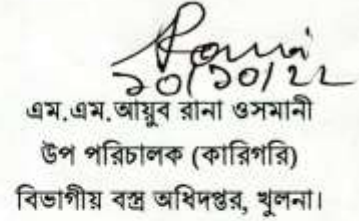 ২০/১০/২২
এম.এম.আয়ুব রানা ওসমানী
উপ পরিচালক (কারিগরি)
বিভাগীয় বস্ত্র অধিদপ্তর, খুলনা।